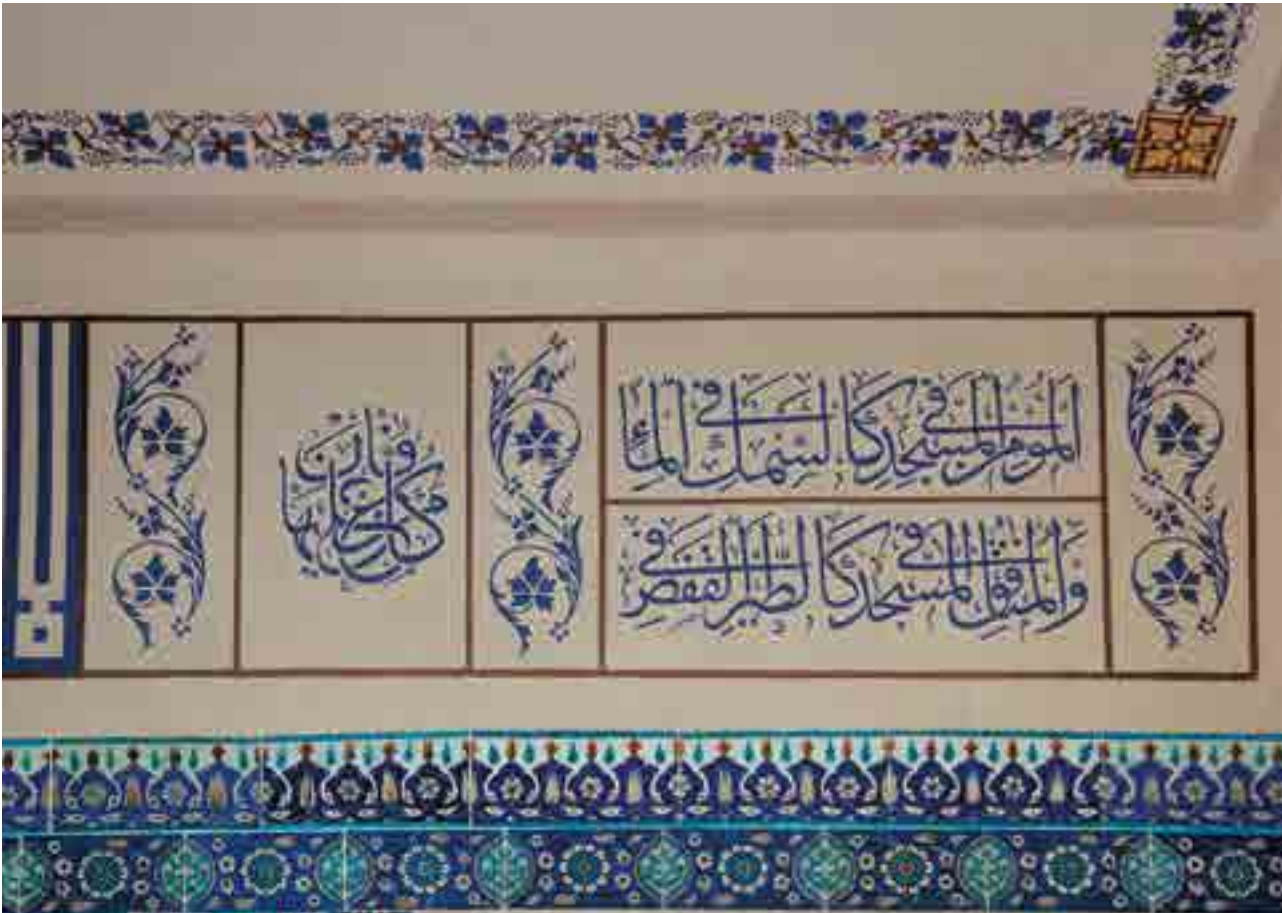 المؤمن في المسجد كالسمك في الماء
والمنافق في المسجد كالطير في القفص
كل من عليها فان